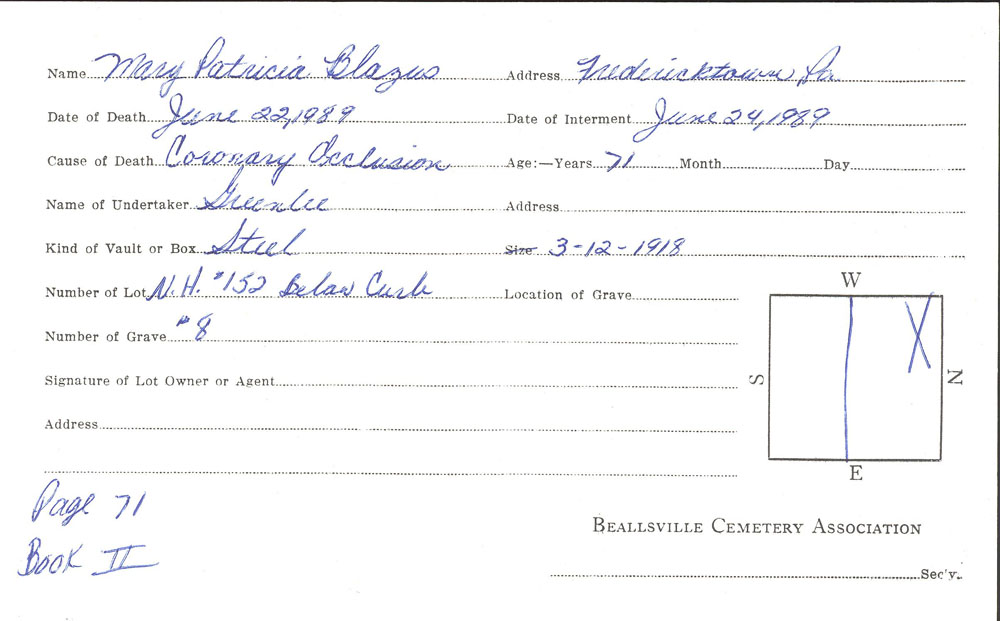 Name Mary Patricia Blazus Address Fredericktown, Pa.
Date of Death June 22, 1989 Date of Interment June 24, 1989
Cause of Death Coronary Occlusion Age:—Years 71 Month Day
Name of Undertaker Greenlee Address
Kind of Vault or Box Steel Size 3-12-1918
Number of Lot N.H. #152 Below Curb Location of Grave
W
Number of Grave #8
S N
Signature of Lot Owner or Agent
Address
E
Page 71
Beallsville Cemetery Association
Book II
Sec'y.